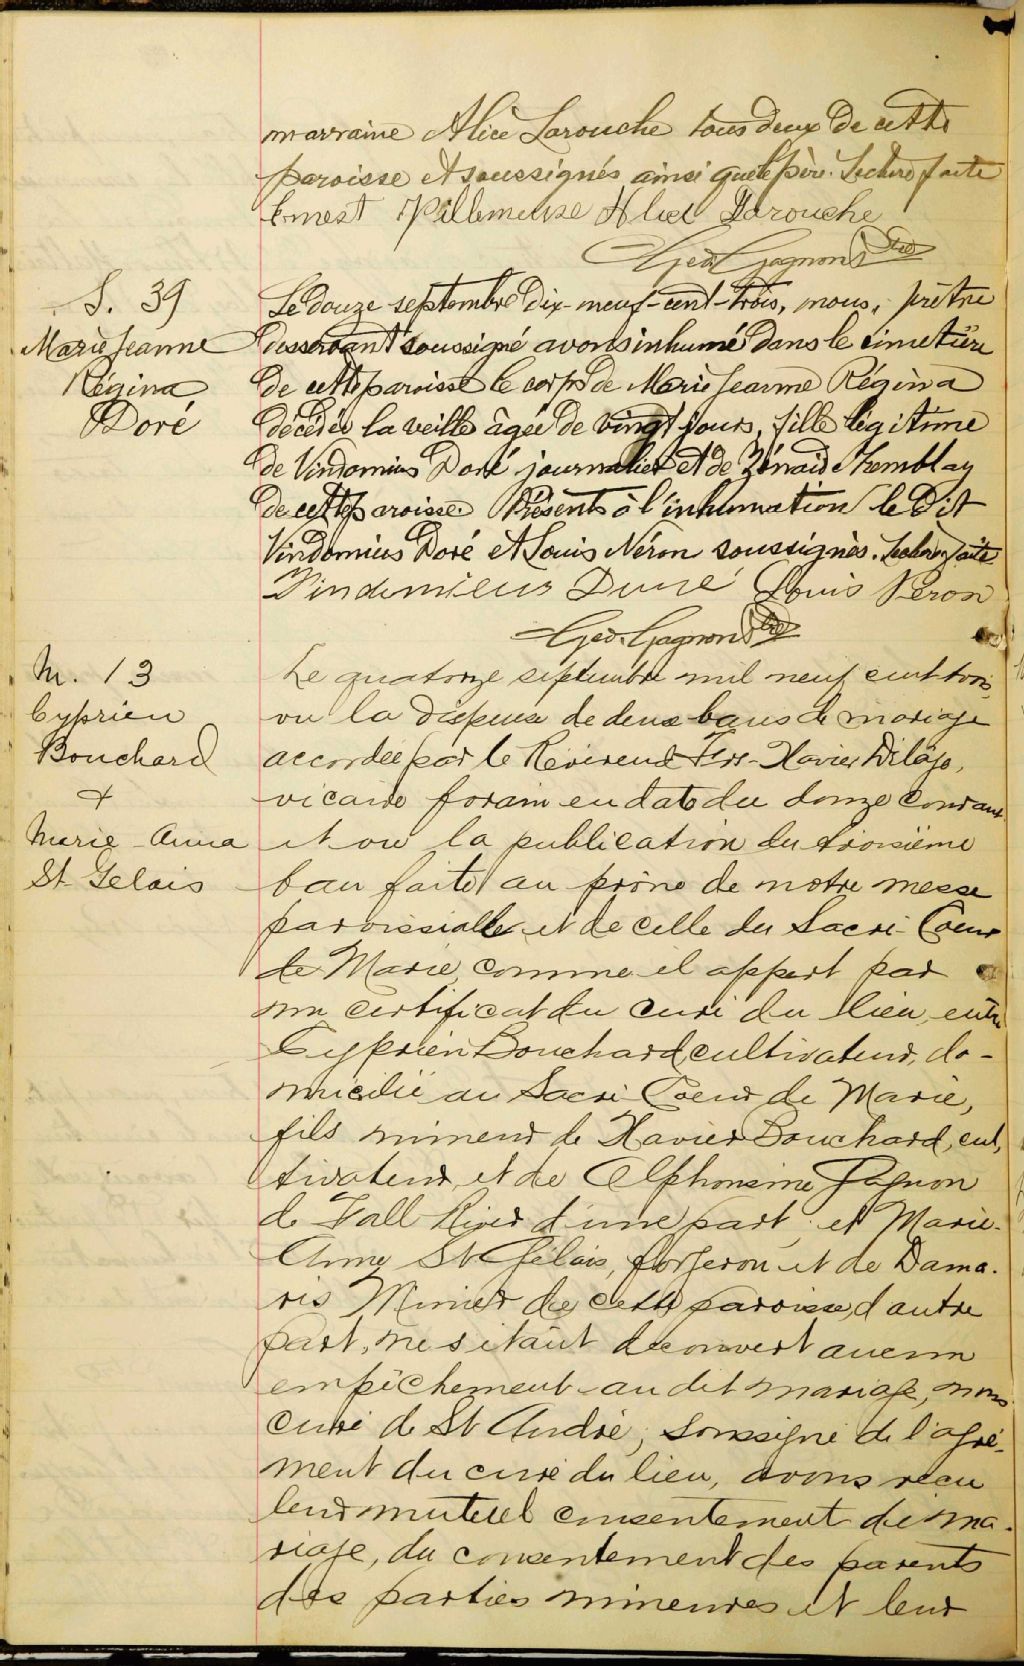 marraine Alice Larouche tous deux de cette
paroisse et soussignés ainsi que le père. Lecture faite
Ernest Villemeuse Alice Larouche
Géd. Gagnon Ptre
S. 39
Marie Jeanne
Régina
Doré
Le douze septembre dix-neuf-cent-trois, nous, prêtre
desservant soussigné avons inhumé dans le cimetière
de cette paroisse le corps de Marie Jeanne Régina
décédée la veille âgée de vingt jours, fille légitime
de Vindomius Doré journalier et de Zénaide Tremblay
de cette paroisse. Présents à l'inhumation le dit
Vindomius Doré et Louis Néron soussignés. Lecture faite
Vindemieus Duré Louis Neron
Géd. Gagnon Ptre
M. 13
Cyprien
Bouchard
&
Marie-Anna
St Gelais
Le quatorze septembre mil neuf cent trois,
vu la dispense de deux bans de mariage
accordée par le Révérend Frs-Xavier Delâge,
vicaire forain en date du douze courant
et vu la publication du troisième
ban faite au prône de notre messe
paroissialle et de celle du Sacré-Coeur
de Marie, comme il appert par
un certificat du curé du lieu, entre
Cyprien Bouchard, cultivateur, do-
micilié au Sacré-Coeur de Marie,
fils mineur de Xavier Bouchard, cul,
tivateur, et de Alphonsine Gagnon
de Fall River d'une part, et Marie-
Anna St Gélais, forgeron et de Dama-
ris Minier de cette paroisse, d'autre
part, ne s'étant découvert aucun
empêchement au dit mariage, nous
curé de St André, soussigné de l'agré-
ment du curé du lieu, avons reçu
leur mutuel consentement de ma-
riage, du consentement des parents
des parties mineures et leur